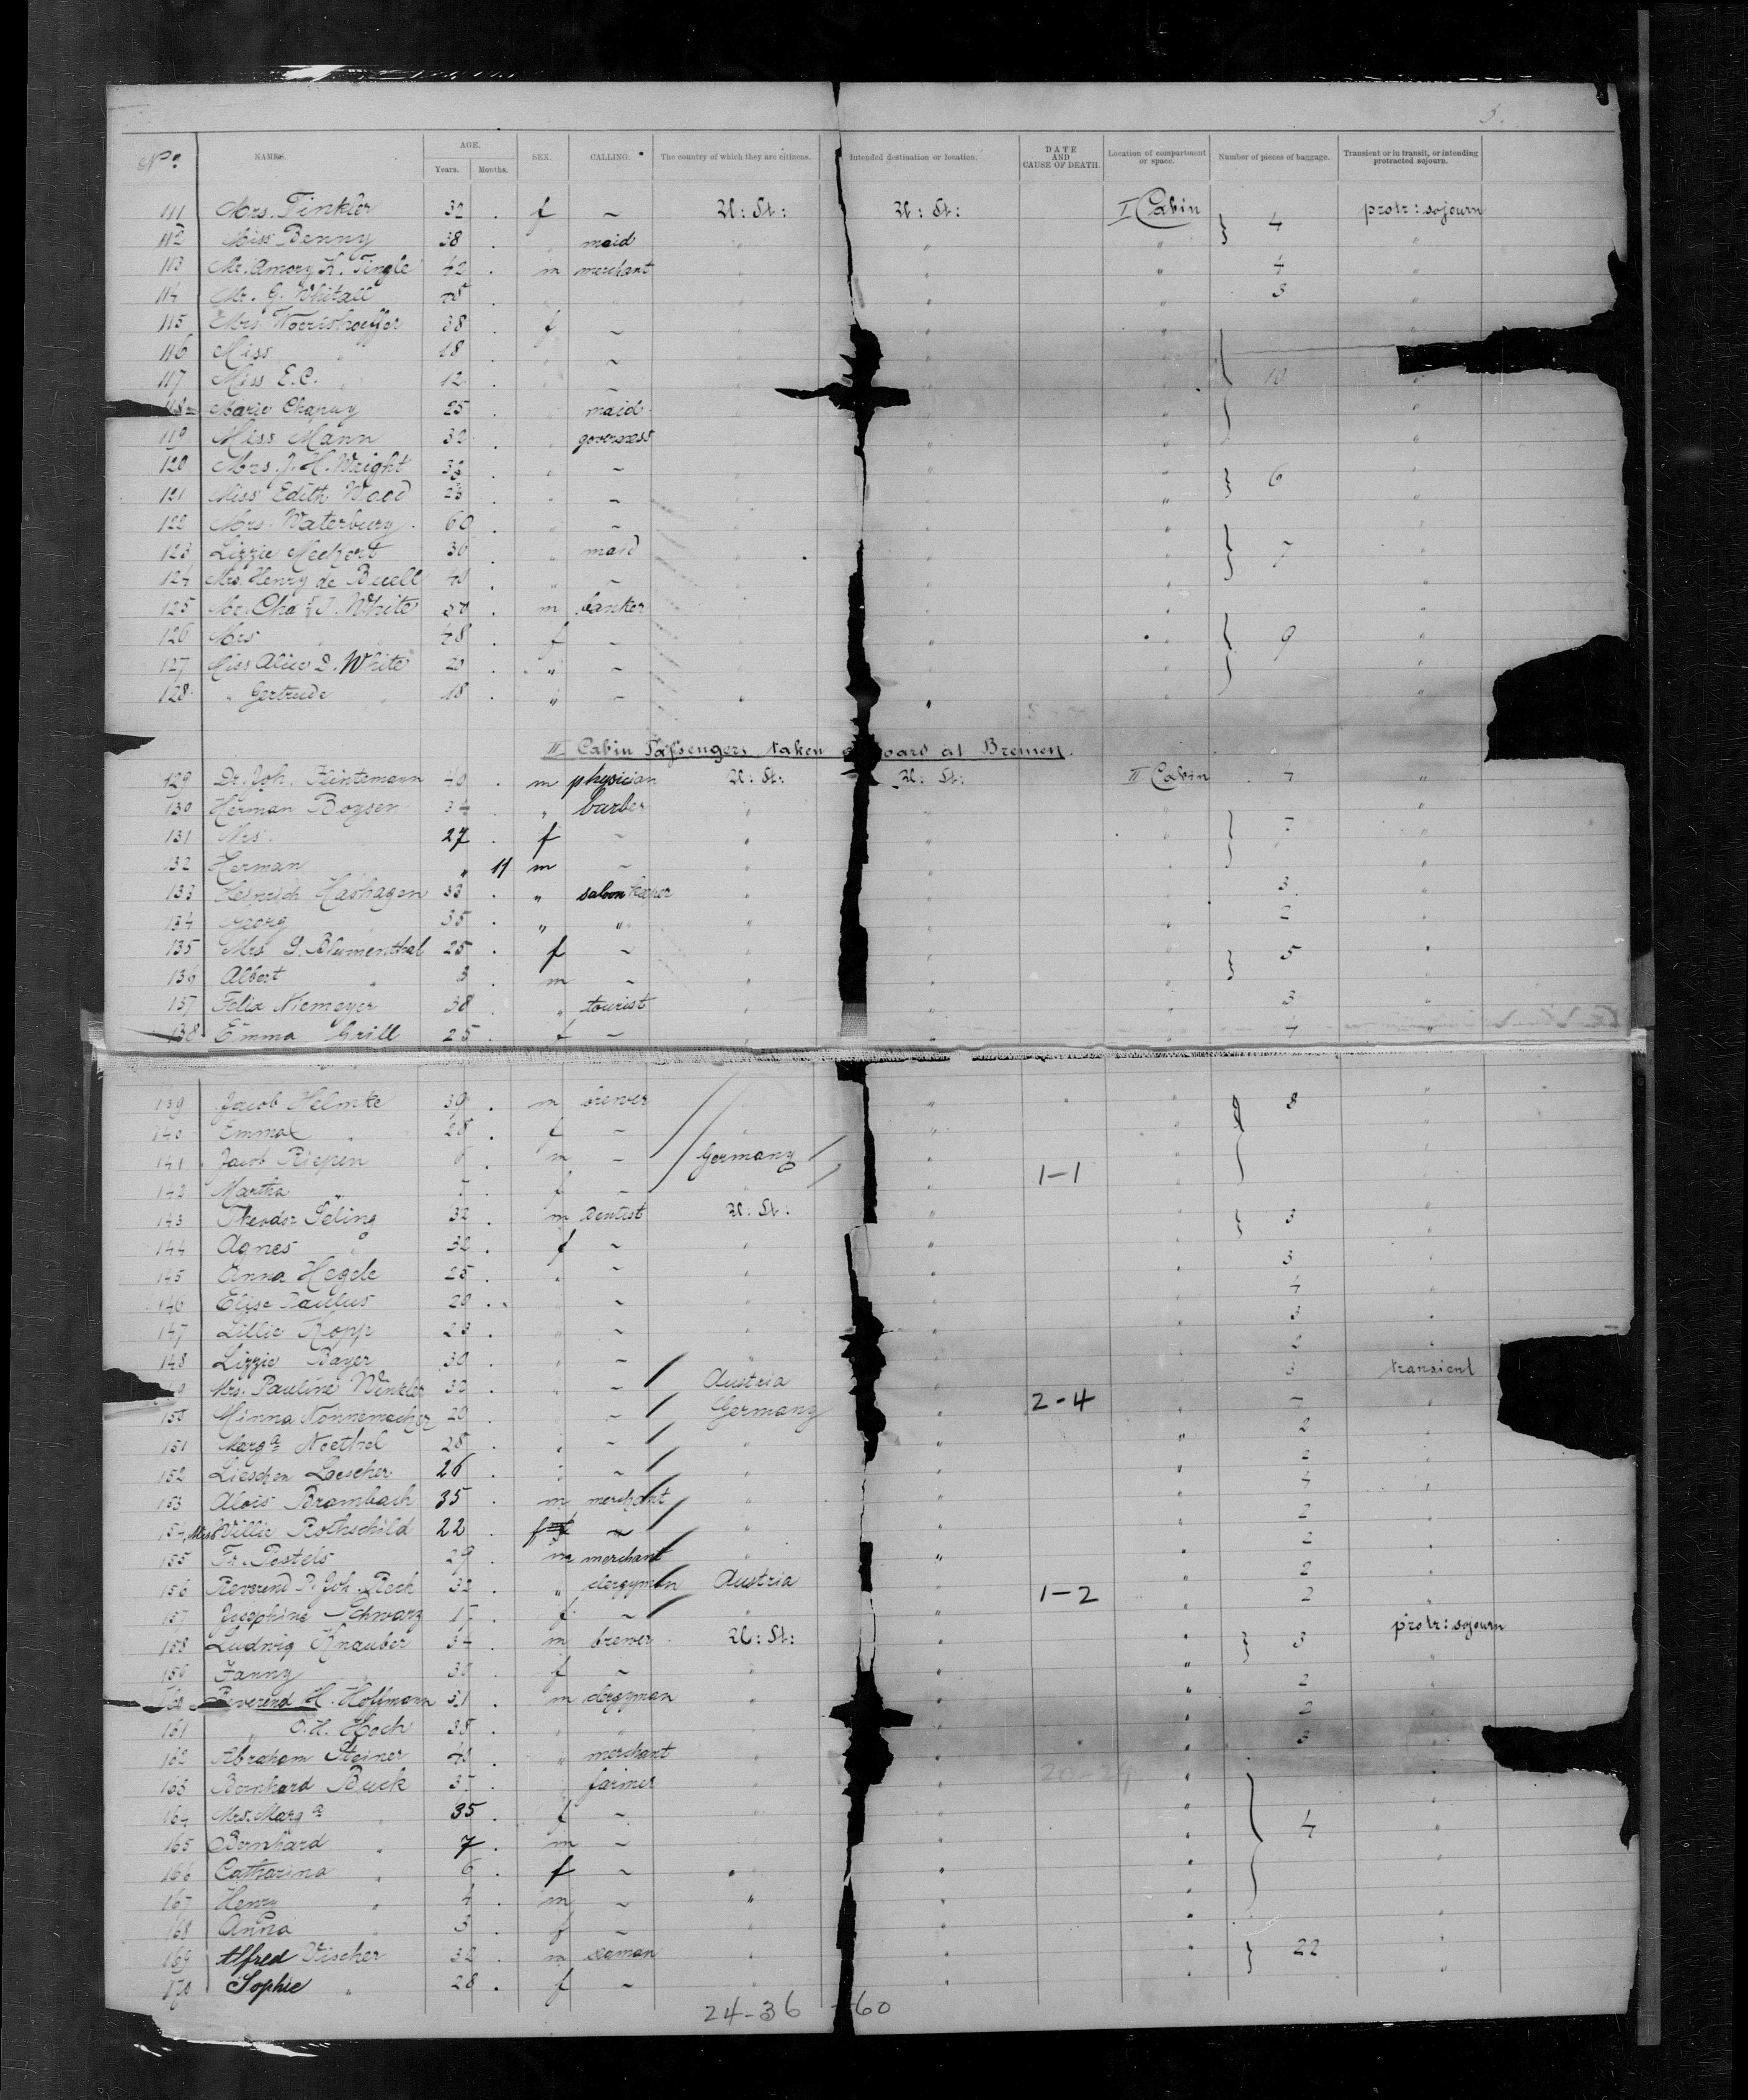 3.
No. NAMES. AGE. Years. Months. SEX. CALLING. The country of which they are citizens. Intended destination or location. DATE AND CAUSE OF DEATH. Location of compartment or space. Number of pieces of baggage. Transient or in transit, or intending protracted sojourn.
111 Mrs. Tinkler 32 . f ~ U: St: U: St: I Cabin 4 protr: sojourn
112 Miss Benny 38 . " maid " " " "
113 Mr. Amory H. Tingle 42 . m merchant " " " 4 "
114 Mr. G. Whitall " " " " 3 "
115 Mrs. Woerishoeffer 38 . f ~ " " " "
116 Miss " 18 . " ~ " " "
117 Miss E.C. " 12 . " ~ " " " 10 "
118 Marie Chapuy 25 . " maid " " " "
119 Miss Mann 32 . " governess " " " "
120 Mrs. J. H. Wright . " ~ " " " 6 "
121 Miss Edith Wood . " ~ " " " "
122 Mrs. Waterbury 60 . " ~ " " " "
123 Lizzie 36 . " maid " " " 7 "
124 Mrs. Henry de Buell 40 . " ~ " " " "
125 Mr. Chas. J. White 50 . m banker " " " "
126 Mrs " 48 . f ~ " " " 9 "
127 Miss Alice D. White 20 . " ~ " " " "
128 " Gertrude " 18 . " ~ " " "
II Cabin Passengers taken on board at Bremen.
129 Dr. Joh. Flintemann 40 . m physician U: St: U: St: II Cabin 4 "
130 Herman Boysen 34 . " barber " " " "
131 Mrs. " 27 . f ~ " " " 7 "
132 Herman " " 11 m ~ " " " "
133 Heinrich Hashagen 33 . " saloonkeeper " " " 3 "
134 Georg " 35 . " " " " " 2 "
135 Mrs S. Blumenthal 25 . f ~ " " " 5 "
136 Albert " 3 . m ~ " " " "
137 Felix Niemeyer 38 " tourist " " " 3 "
138 Emma Grill 25 . f ~ " " 4 "
139 Jacob Helmke 39 . m brewer " " " 8 "
140 Emma " 28 . f ~ " " "
141 Jacob Riepen 6 . m ~ Germany " " "
142 Martha " . f ~ " " 1-1 " "
143 Theodor Peling 32 . m dentist U: St: " " 3 "
144 Agnes " 32 . f ~ " " " "
145 Anna Hegele 25 . " ~ " " " 3 "
146 Elise Paulus 20 . " ~ " " " 4 "
147 Lillie Kopp 23 . " ~ " " " 3 "
148 Lizzie Bayer 30 . " ~ " " " 2 "
Mrs. Pauline Winkler 30 . " ~ Austria " " 3 transient
150 Minna Nonnemacher 20 . " ~ Germany " 2-4 " - "
151 Marga. Noethel 28 . " ~ " " " 2 "
152 Lieschen Loescher 26 . " ~ " " " 2 "
153 Alois Brambach 35 . m merchant " " " 4 "
154 Miss Willie Rothschild 22 . f ~ " " " 2 "
155 Fr. Postels 29 . m merchant " " " 2 "
156 Reverend P. Joh. Rech 32 . " clergyman Austria " " 2 "
157 Josephine Schwarz 17 . f ~ " " 1-2 " 2 "
158 Ludwig Knauber 34 . m brewer U: St: " " 3 protr: sojourn
159 Fanny " 30 . f ~ " " " "
160 Reverend H. Hoffmann 31 . m clergyman " " " 2 "
161 " O. H. Hoch 38 . " " " " " 2 "
162 Abraham Steiner 40 . " merchant " " " 3 "
163 Bernhard Buck . " farmer " " 20-24 " "
164 Mrs. Marga. " 35 . f ~ " " " 4 "
165 Bernhard " 7 . m ~ " " " "
166 Catharina " 6 . f ~ " " " "
167 Henry " 4 . m ~ " " " "
168 Anna " 3 . f ~ " " " "
169 Alfred Vischer 32 . m seaman " " " 22 "
170 Sophie " 28 . f ~ " " " "
24-36 60